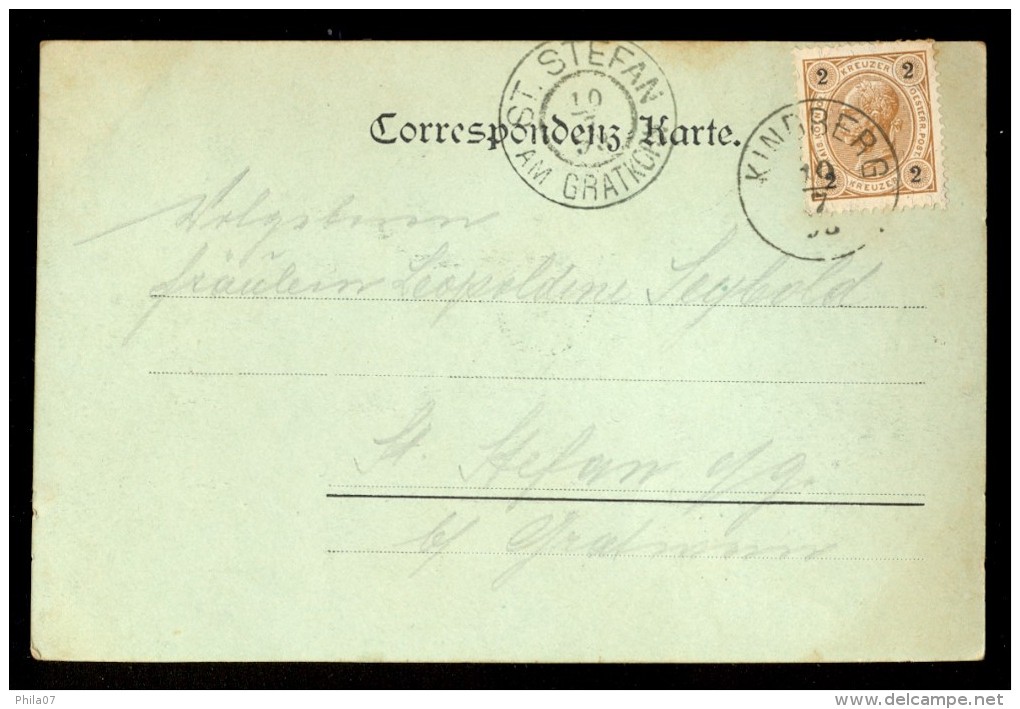 ST. STEFAN
10
AM GRATKORN
Correspondenz-Karte.
2 KREUZER 2
OESTERR. POST.
2 KREUZER 2
KINDBERG
10
7
98
Wolgeboren
Fräulein Leopoldine Seybold
St. Stefan a/g.
b/ Gratwein
Phila07
delcampe.net